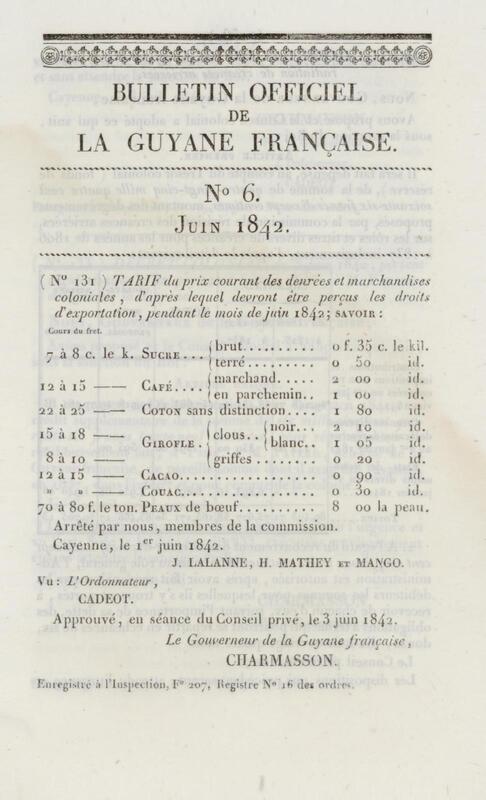 BULLETIN OFFICIEL
DE
LA GUYANE FRANÇAISE.
N° 6.
JUIN 1842.
( N° 131 ) TARIF du prix courant des denrées et marchandises
coloniales, d'après lequel devront être perçus les droits
d'exportation, pendant le mois de juin 1842; SAVOIR :
Cours du fret.
7 à 8 c. le k. SUCRE... { brut.......... 0 f. 35 c. le kil.
{ terré.......... 0 50 id.
12 à 15 —— CAFÉ.... { marchand..... 2 00 id.
{ en parchemin.. 1 00 id.
22 à 25 —— COTON sans distinction.... 1 80 id.
15 à 18 —— GIROFLE. { clous.. { noir... 2 10 id.
{ blanc.. 1 05 id.
8 à 10 —— { griffes........ 0 20 id.
12 à 15 —— CACAO.................. 0 90 id.
» » —— COUAC.................. 0 30 id.
70 à 80 f. le ton. PEAUX de bœuf........... 8 00 la peau.
Arrêté par nous, membres de la commission.
Cayenne, le 1er juin 1842.
J. LALANNE, H. MATHEY ET MANGO.
Vu : L'Ordonnateur,
CADEOT.
Approuvé, en séance du Conseil privé, le 3 juin 1842.
Le Gouverneur de la Guyane française,
CHARMASSON.
Enregistré à l'Inspection, F° 207, Registre N° 16 des ordres.